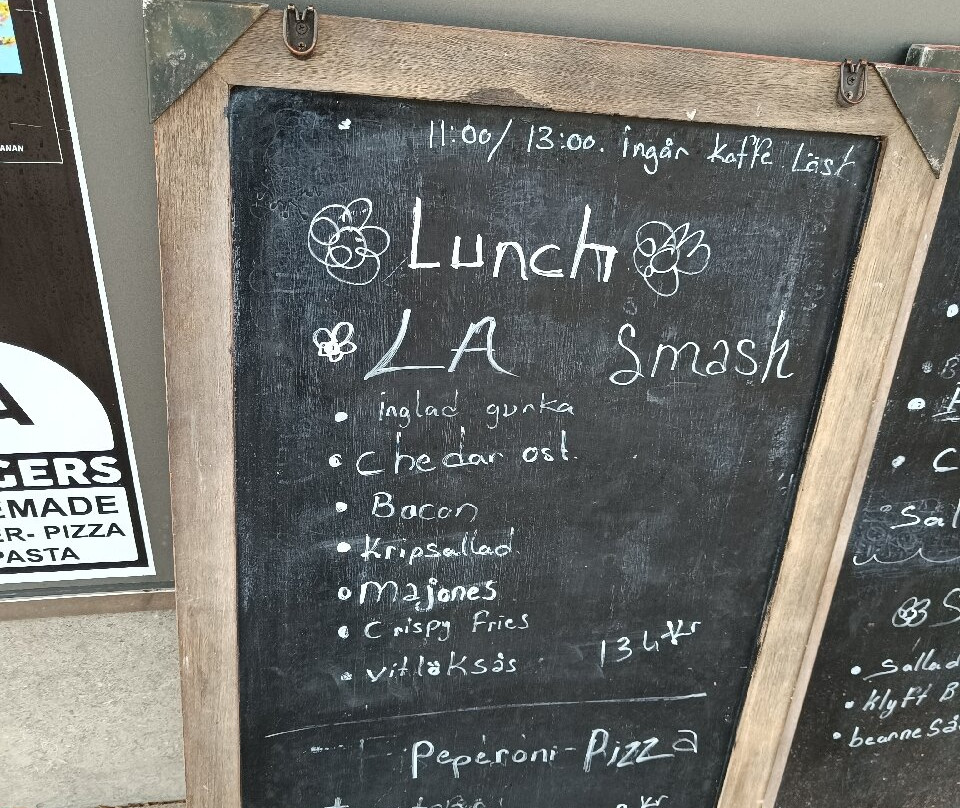 11:00/ 13:00. ingår kaffe Läsk
Lunch
LA Smash
inglad gurka
chedar ost.
Bacon
Kripsallad
majones
Crispy Fries
vitlöksås
134 kr
Peperoni-Pizza
kr
ANAN
A
GERS
EMADE
ER- PIZZA
PASTA
C
Sal
S
sallad
klyft B
bearnesås